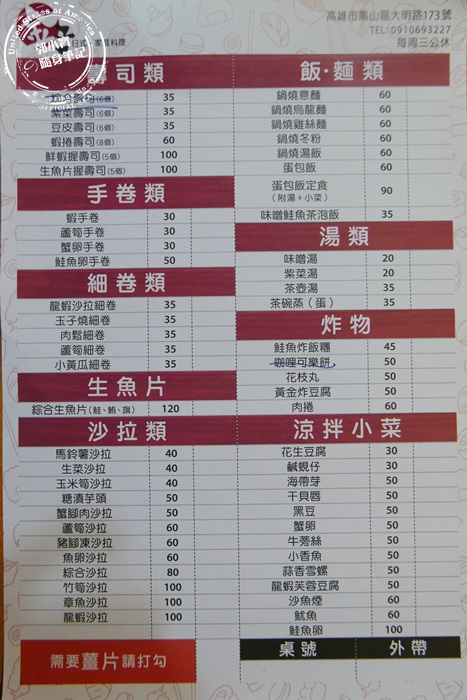 United States of America
郭小寶
隨身筆記
OFFICIAL
日式 家庭料理
高雄市鳳山區大明路173號
TEL: 0910693227
每周三公休
壽司類
紫菜壽司(6個) 35
豆皮壽司(5個) 35
蝦捲壽司(8個) 60
鮮蝦握壽司(5個) 100
生魚片握壽司(5個) 100
手卷類
蝦手卷 30
蘆筍手卷 30
蟹卵手卷 30
鮭魚卵手卷 50
細卷類
龍蝦沙拉細卷 35
玉子燒細卷 35
肉鬆細卷 35
蘆筍細卷 35
小黃瓜細卷 35
生魚片
綜合生魚片(鮭、鮪、旗) 120
沙拉類
馬鈴薯沙拉 40
生菜沙拉 40
玉米筍沙拉 40
糖漬芋頭 50
蟹腳肉沙拉 50
蘆筍沙拉 60
豬腳凍沙拉 60
魚卵沙拉 60
綜合沙拉 80
竹筍沙拉 100
章魚沙拉 100
龍蝦沙拉 100
需要薑片請打勾
飯‧麵類
鍋燒意麵 60
鍋燒烏龍麵 60
鍋燒雞絲麵 60
鍋燒冬粉 60
鍋燒湯飯 60
蛋包飯 60
蛋包飯定食
(附湯+小菜) 90
味噌鮭魚茶泡飯 35
湯類
味噌湯 20
紫菜湯 20
茶壺湯 35
茶碗蒸(蛋) 35
炸物
鮭魚炸飯糰 45
咖哩可樂餅 50
花枝丸 50
黃金炸豆腐 50
肉捲 60
涼拌小菜
花生豆腐 30
鹹蜆仔 30
海帶芽 50
干貝唇 50
黑豆 50
蟹卵 50
牛蒡絲 50
小香魚 50
蒜香雪螺 50
龍蝦芙蓉豆腐 50
沙魚煙 60
魷魚 60
鮭魚卵 100
桌號 外帶